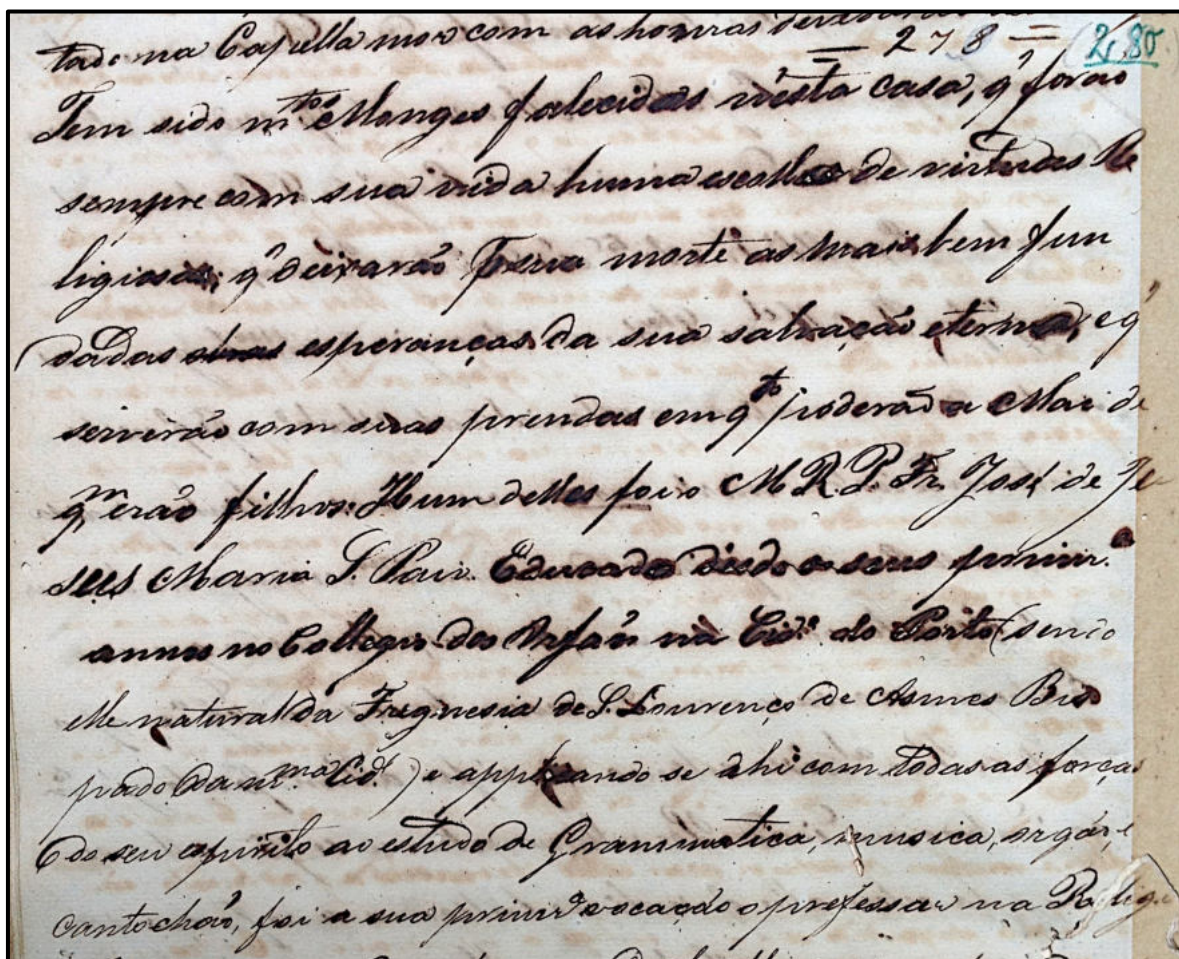 tado na Capella mor com as honras
= 278 = 2,80
Tem sido m.tos Monges falecidos nésta casa, q' forão
sempre com sua vida huma escolha de virtudes Re
ligiosas, q' deixarão p sua morte as mais bem fun
dadas esperanças da sua salvação eterna, e q'
servirão com suas prendas em q.to poderão a Mai de
q.m erão filhos. Hum delles foi o M. R. P. Fr. José de Je
sus Maria S. Paio. Educado desde os seus primr.os
annos no Collegio dos Orfãos na Cid.e do Porto (sendo
elle natural da Freguesia de S. Lourenço de Asmes Bis
pado da m.ma Cid.e) e applicando se ahi com todas as forças
do seu espirito ao estudo de Grammatica, musica, orgão, e
cantochão, foi a sua primr.a vocação o professar na Relig.